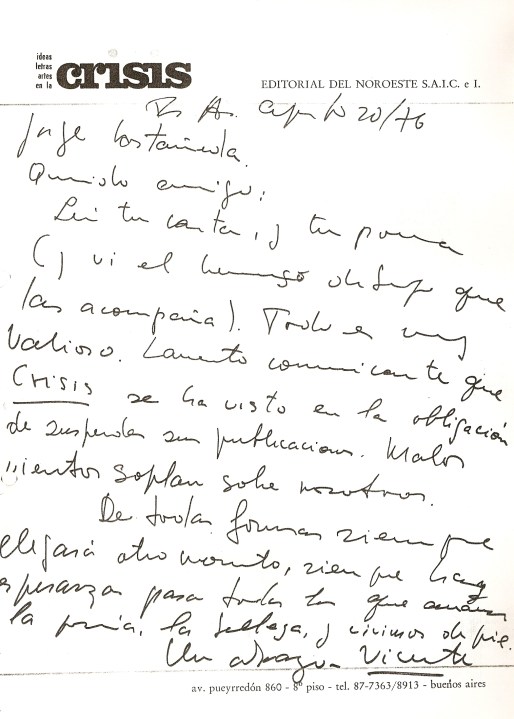 ideas
letras
artes
en la crisis
EDITORIAL DEL NOROESTE S.A.I.C. e I.
Bs As. agosto 20/76
Jorge
Querido amigo:
Leí tu carta, y tu poema
(y vi el hermoso dibujo que
las acompaña). Todo es muy
valioso. Lamento comunicarte que
Crisis se ha visto en la obligación
de suspender sus publicaciones. Malos
vientos soplan sobre nosotros.
De todas formas siempre
llegará otro momento, siempre hay
esperanzas para todos los que amamos
la poesía, la belleza, y vivimos de pie.
Un abrazo. Vicente
av. pueyrredón 860 - 8º piso - tel. 87-7363/8913 - buenos aires